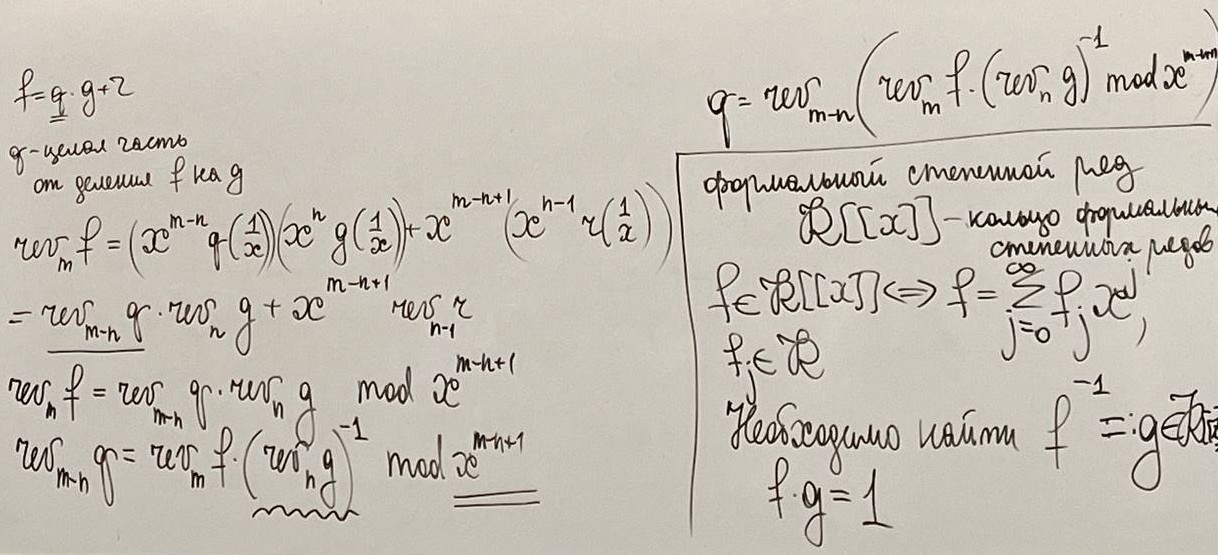 f = q · g + r
q - целая часть
от деления f на g
rev_m f = (x^{m-n} q(1/x))(x^n g(1/x)) + x^{m-n+1} (x^{n-1} r(1/x))
= rev_{m-n} q · rev_n g + x^{m-n+1} rev_{n-1} r
rev_m f = rev_{m-n} q · rev_n g mod x^{m-n+1}
rev_{m-n} q = rev_m f · (rev_n g)^{-1} mod x^{m-n+1}
q = rev_{m-n} (rev_m f · (rev_n g)^{-1} mod x^{m-n+1})
формальный степенной ряд
R[[x]] - кольцо формальных
степенных рядов
f ∈ R[[x]] <=> f = ∑_{j=0}^{∞} f_j x^j,
f_j ∈ R
Необходимо найти f^{-1} =: g ∈ R
f · g = 1